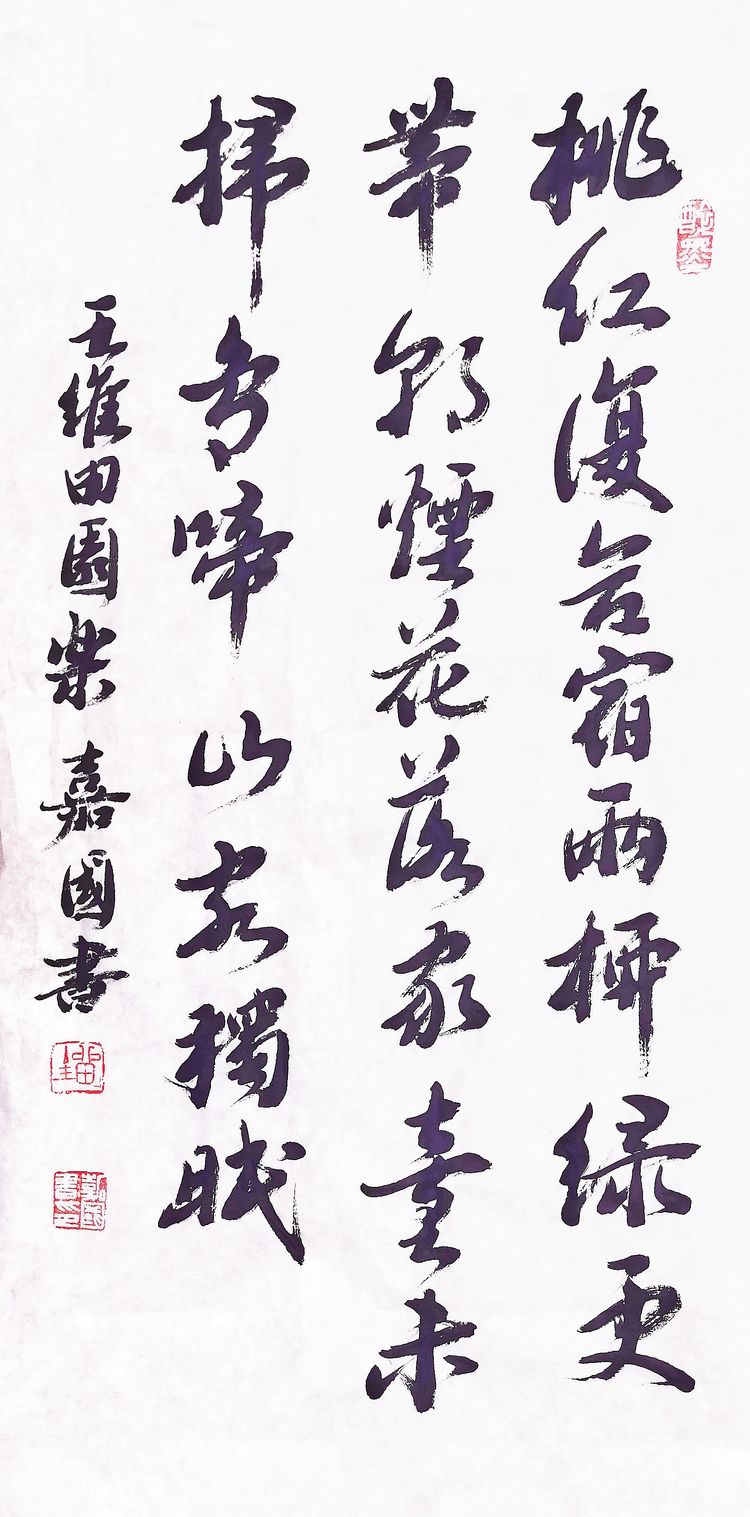 桃红復含宿雨柳绿更
帶朝煙花落家童未
掃鳥啼山客獨眠
王維田園樂 嘉國書
嘉國書印